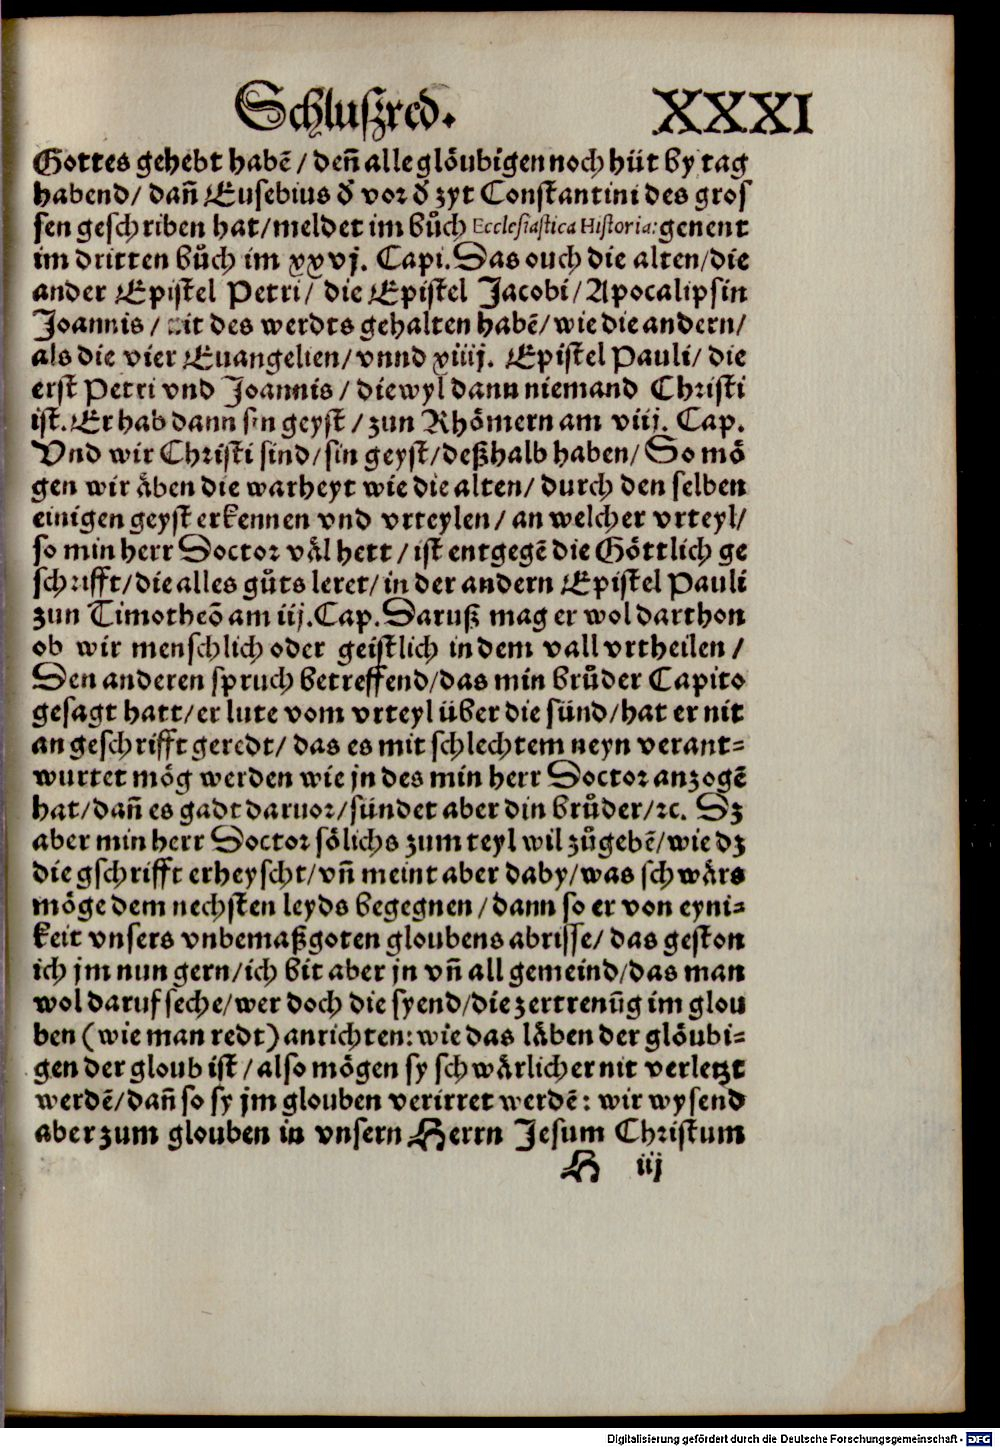 Schlußred. XXXI
Gottes gehebt habẽ/ deñ alle glöubigen noch hüt by tag
habend/ dañ Eusebius ď vor ď zyt Constantini des gros
sen geschriben hat/ meldet im bůch Ecclesiastica Historia: genent
im dritten bůch im xxvj. Capi. Das ouch die alten/ die
ander Epistel Petri/ die Epistel Jacobi/ Apocalipsin
Joannis/ nit des werdts gehalten habẽ/ wie die andern/
als die vier Euangelien/ vnnd xiiij. Epistel Pauli/ die
erst Petri vnd Joannis/ diewyl dann niemand Christi
ist. Er hab dann sin geyst/ zun Rhömern am viij. Cap.
Vnd wir Christi sind/ sin geyst/ deßhalb haben/ So mö
gen wir äben die warheyt wie die alten/ durch den selben
einigen geyst erkennen vnd vrteylen/ an welcher vrteyl/
so min herr Doctor väl hett/ ist entgegẽ die Göttlich ge
schrifft/ die alles gůts leret/ in der andern Epistel Pauli
zun Timotheõ am iij. Cap. Daruß mag er wol darthon
ob wir menschlich oder geistlich in dem vall vrtheilen/
Den anderen spruch betreffend/ das min brůder Capito
gesagt hatt/ er lute vom vrteyl über die sünd/ hat er nit
an geschrifft geredt/ das es mit schlechtem neyn verant⸗
wurtet mög werden wie jn des min herr Doctor anzogẽ
hat/ dañ es gadt daruor/ sündet aber din brůder/ ⁊c. Dz
aber min herr Doctor sölichs zum teyl wil zůgebẽ/ wie dz
die gschrifft erheyscht/ vñ meint aber daby/ was schwärs
möge dem nechsten leyds begegnen/ dann so er von eyni⸗
keit vnsers vnbemaßgoten gloubens abrisse/ das geston
ich jm nun gern/ ich bit aber jn vñ all gemeind/ das man
wol daruf seche/ wer doch die syend/ die zertrenũg im glou
ben (wie man redt) anrichten: wie das läben der glöubi⸗
gen der gloub ist/ also mögen sy schwärlicher nit verletzt
werdẽ/ dañ so sy jm glouben verirret werdẽ: wir wysend
aber zum glouben in vnsern Herrn Jesum Christum
H iij
Digitalisierung gefördert durch die Deutsche Forschungsgemeinschaft - DFG